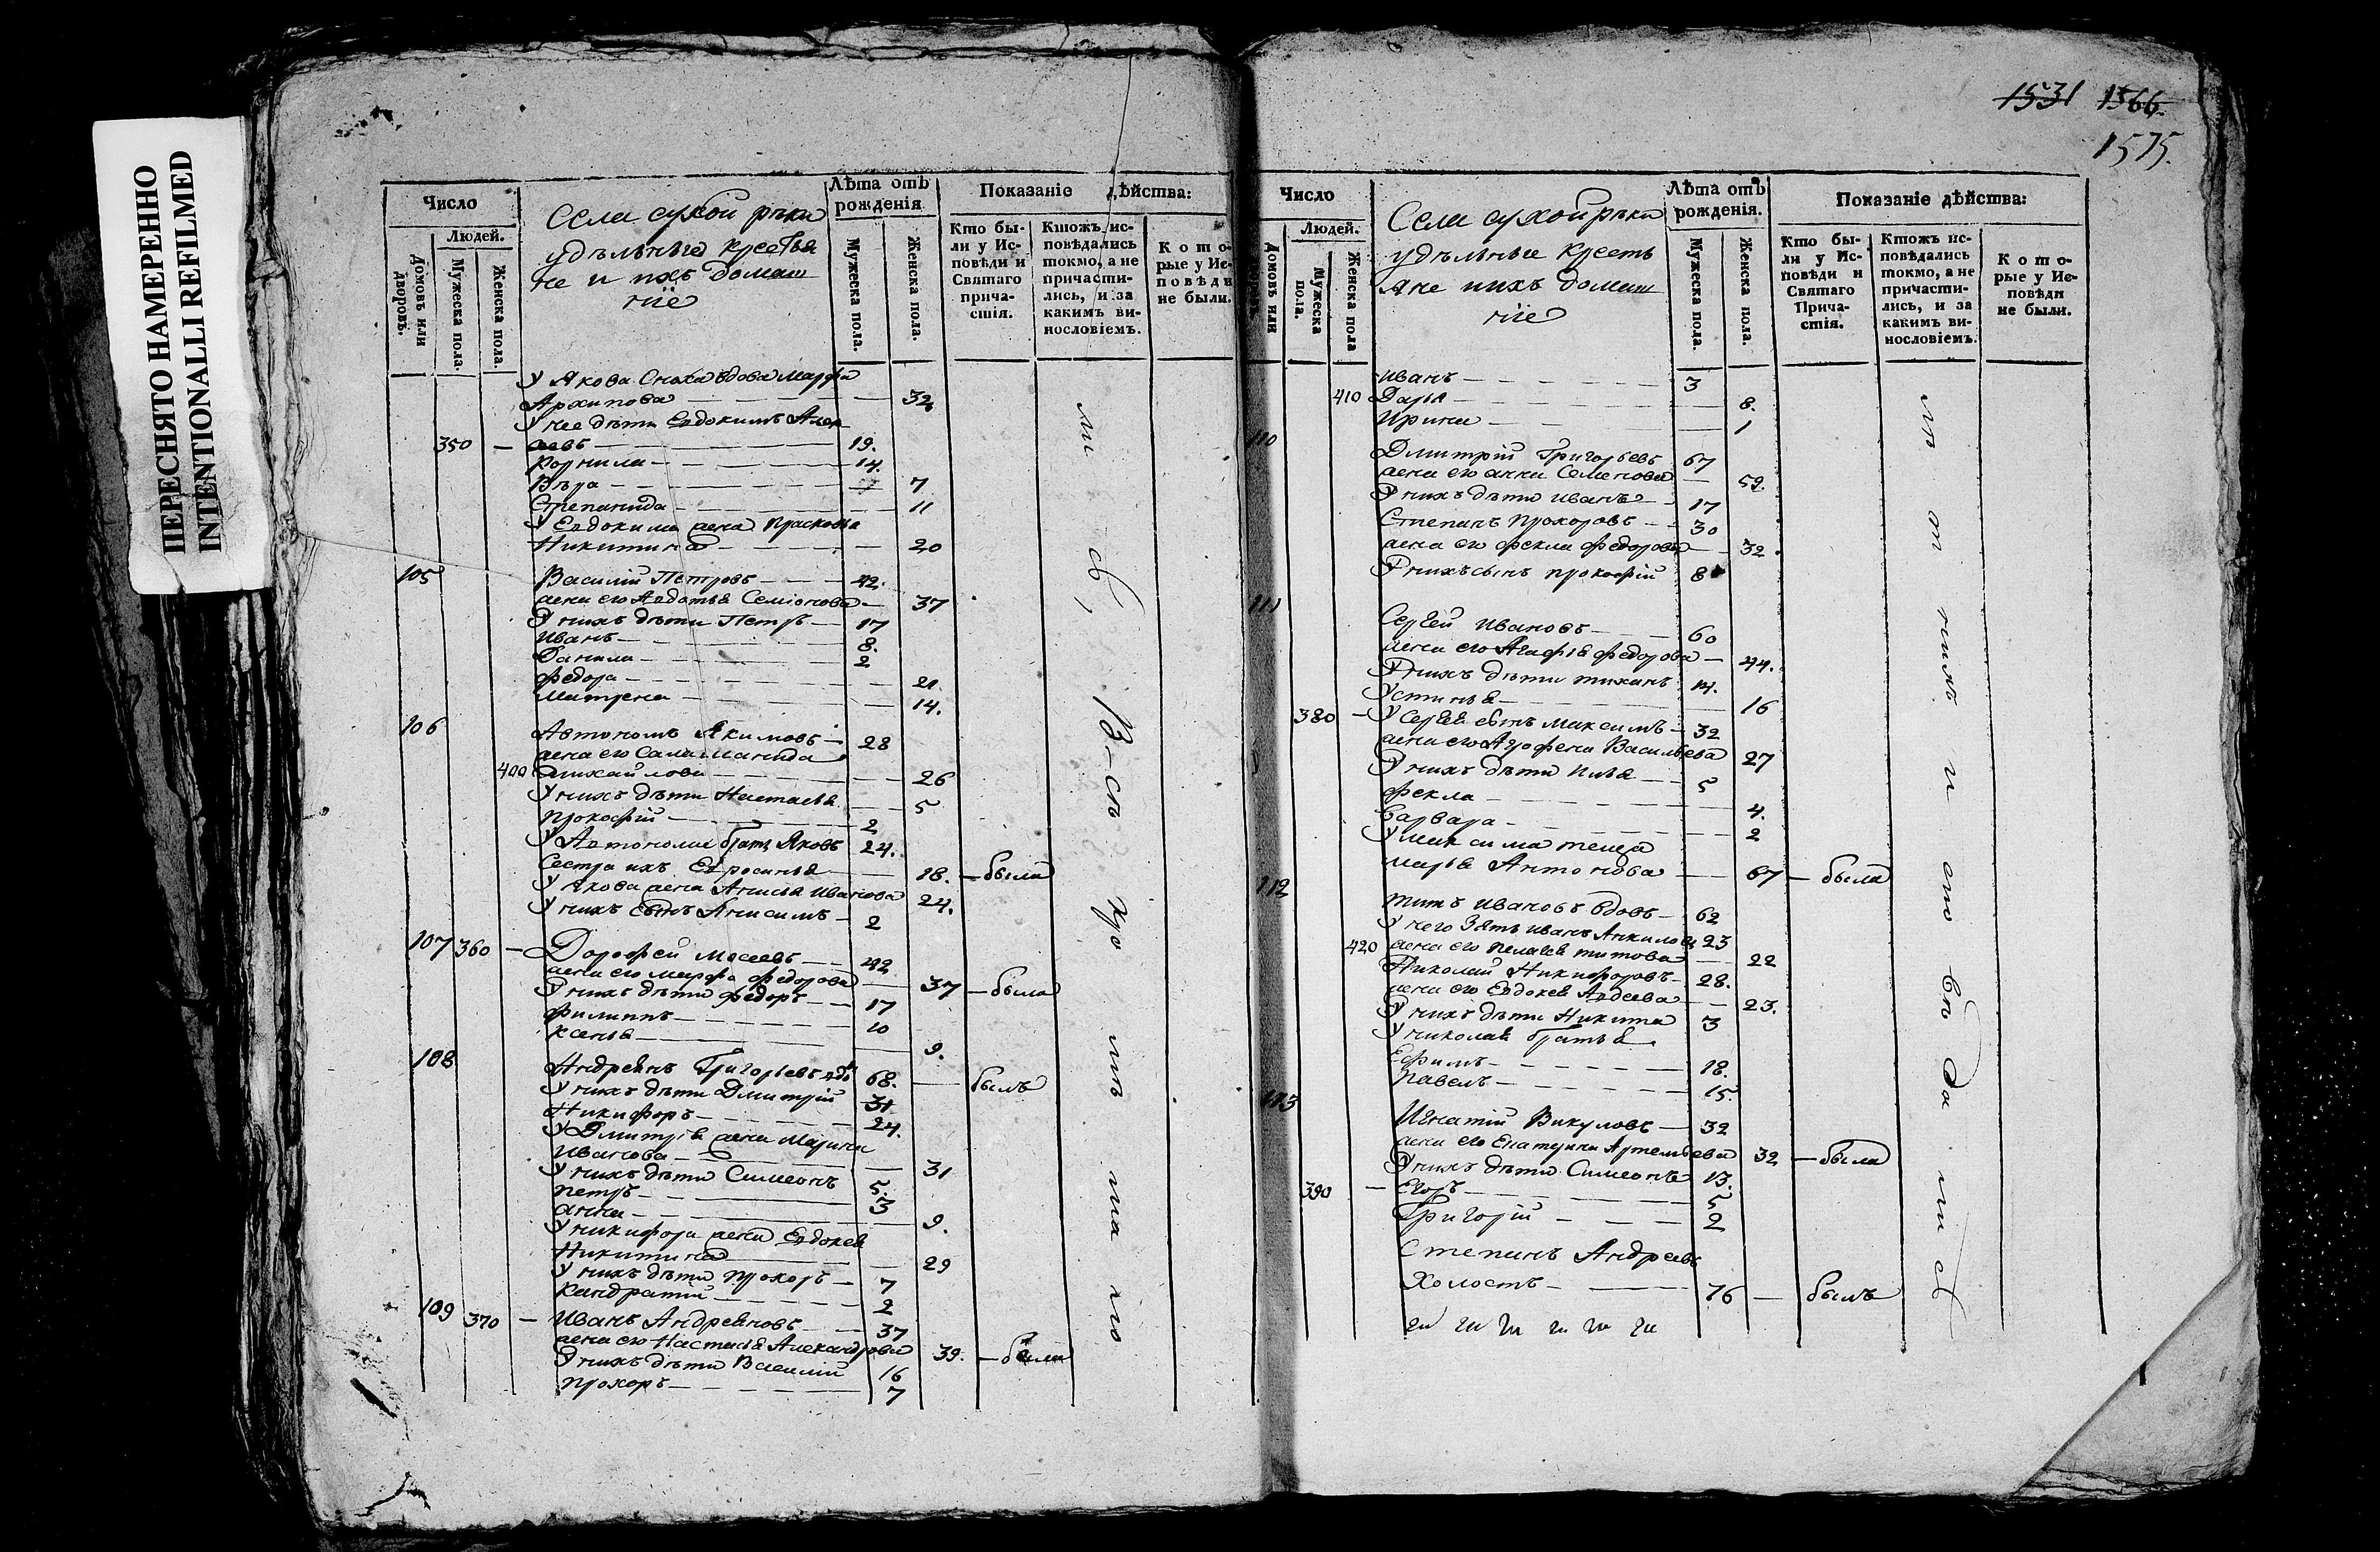 ПЕРЕСНЯТО НАМЕРЕННО
INTENTIONALLI REFILMED
1531 1566.
1575.
Число
Людей.
Домовъ или дворовъ.
Мужеска пола.
Женска пола.
Села сухой рѣки
удѣльные крестья
не и ихъ домаш
ніе
Лѣта отъ рожденія
Мужеска пола.
Женска пола.
Показаніе дѣйства:
Кто бы-
ли у Ис-
повѣди и
Святаго
прича-
стія.
Ктожъ ис-
повѣдались
токмо, а не
причасти-
лись, и за
какимъ ви-
нословіемъ.
К о т о-
рые у Ис-
п о в ѣ д и
не были.
У Якова Сноха вдова Марфа
Архипова 32
У нее дѣти Евдокимъ Алек
350 — сеевъ 19.
Корнила 14.
Вѣра 7
Степанида 11
У Евдокима жена Прасковья
Никитина 20
105 Василій Петровъ 42.
жена его Авдотья Семіонова 37
У нихъ дѣти Петръ 17
Иванъ 8.
Данила 2
Федора 21
Матрена 14.
106 Автономъ Якимовъ 28
жена его Саламанида
400 Михайлова 26
У нихъ дѣти Настасья 5
Прокофій 2
У Автонома братъ Яковъ 24.
Сестра ихъ Евросинья 18. — была
У Якова жена Анисья Иванова 24.
У нихъ сынъ Анисимъ 2
107 360 — Дорофей Мосеевъ 42
жена его Марфа Федорова 37 — была
У нихъ дѣти Федоръ 17
Филиппъ 10
Ксенья 9.
108 Андреянъ Григорьевъ вдъ 68. — былъ
У нихъ дѣти Дмитрій 31
Никифоръ 24.
У Дмитрія жена Марина
Иванова 31
У нихъ дѣти Симеонъ 5.
Петръ 3
Анна 9.
У Никифора жена Евдокея
Никитина 29
У нихъ дѣти Прохоръ 7
Кандратій 2
109 370 — Иванъ Андреяновъ 37
жена его Настасья Александрова 39. — была
У нихъ дѣти Василій 16
Прохоръ 7
Число
Людей.
Домовъ или
Мужеска пола.
Женска пола
Села сухой рѣки
удѣльные кресть
яне ихъ домаш
ніе
Лѣта отъ рожденія.
Мужеска пола.
Женска пола.
Показаніе дѣйства:
Кто бы-
ли у Ис-
повѣди и
Святаго
Прича-
стія.
Ктожъ ис-
повѣдались
токмо, а не
причасти-
лись, и за
какимъ ви-
нословіемъ.
К о т о-
рые у Ис-
повѣди
не были.
Иванъ 3
410 Дарья 8.
Ирина 1
110 Дмитрій Григорьевъ 67
жена его Анна Семенова 59.
У нихъ дѣти Иванъ 17
Степанъ Прохоровъ 30
жена его Фекла Федорова 32.
У нихъ сынъ Прокофій 8
111 Сергей Ивановъ 60
жена его Агафья Федорова 44.
У нихъ дѣти Тиханъ 14.
Устинья 16
380 — У Сергея сынъ Максимъ 32
жена его Агрофена Васильева 27
У нихъ дѣти Илья 5
Фекла 4.
Варвара 2
У Максима теща
Марья Антонова 67 — была
112 Титъ Ивановъ вдовъ 62
У него Зять Иванъ Акиловъ 23
420 жена его Пелагея Титова 22
Николай Никифоровъ 28.
жена его Евдокея Авдеева 23.
У нихъ дѣти Никита 3
У Николая братья
Ефимъ 18.
Павелъ 15.
113 Игнатій Викуловъ 32
жена его Екатерина Артемьева 32 — была
У нихъ дѣти Симеонъ 13.
390 — Егоръ 5
Григорій 2
Степанъ Андреевъ
Холостъ 76 — былъ